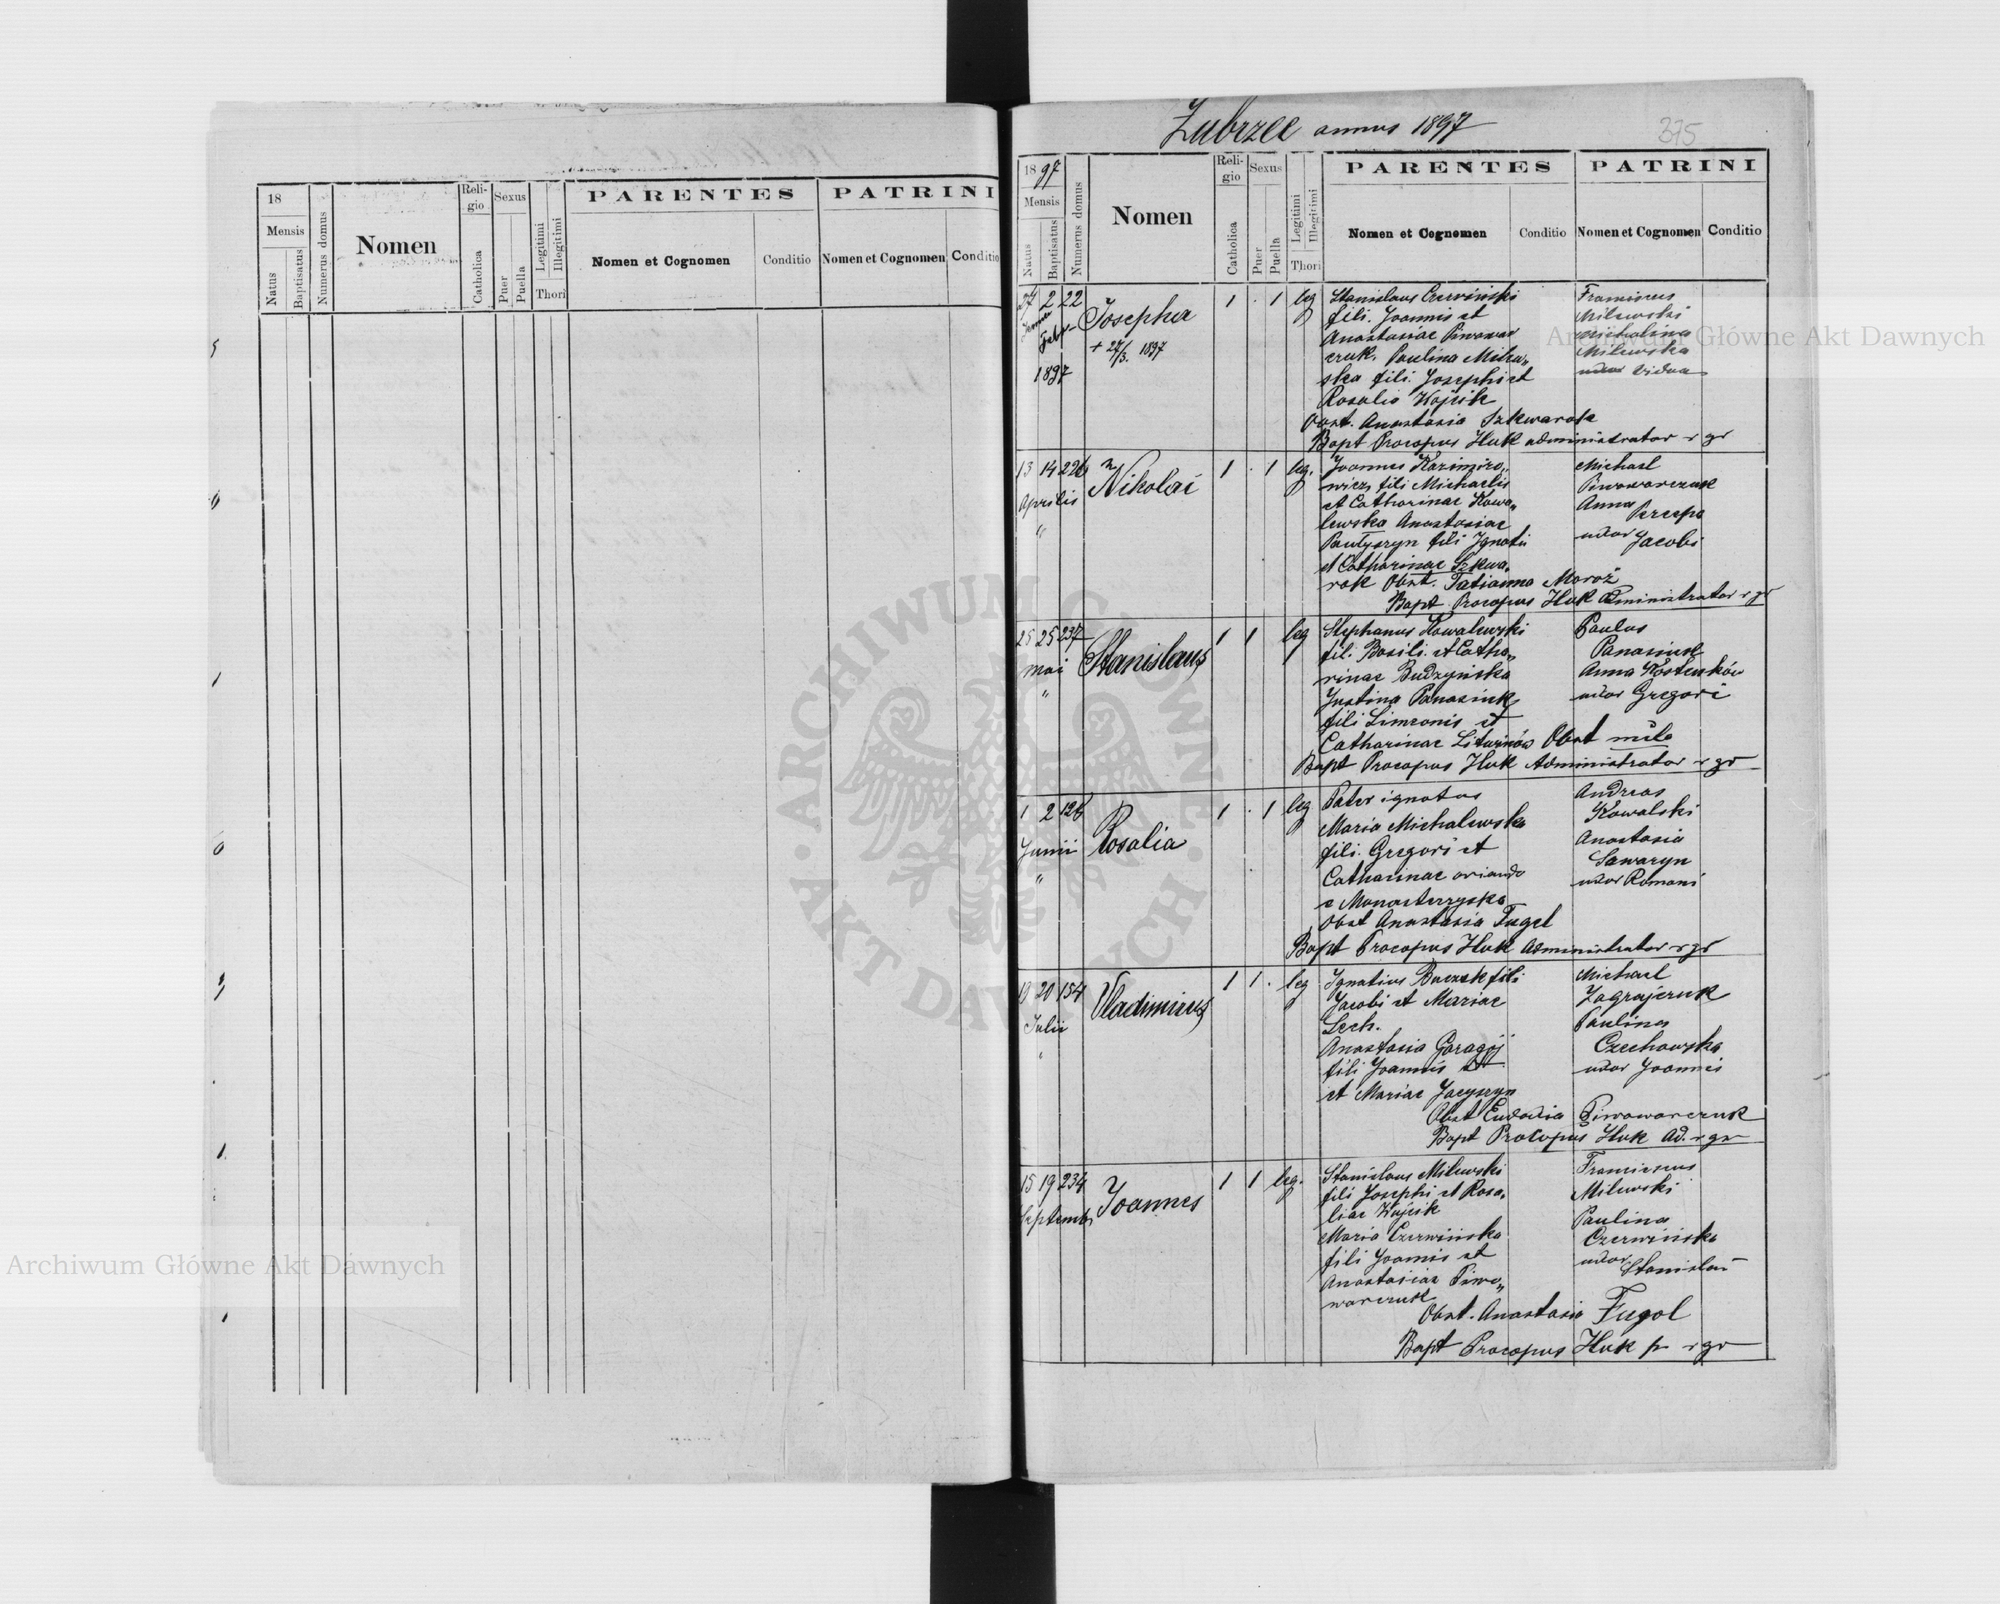 18
Mensis
Natus
Baptisatus
Numerus domus
Nomen
Religio
Catholica
Sexus
Puer
Puella
Legitimi
Illegitimi
Thori
PARENTES
Nomen et Cognomen
Conditio
PATRINI
Nomen et Cognomen
Conditio
Zubrzec annus 1897
375
1897
Mensis
Natus
Baptisatus
Numerus domus
Nomen
Religio
Catholica
Sexus
Puer
Puella
Legitimi
Illegitimi
Thori
PARENTES
Nomen et Cognomen
Conditio
PATRINI
Nomen et Cognomen
Conditio
27 2 22
Febr
1897
Josepha
+ 27/3. 1897
1 . 1 leg
Stanislaus Czerwinski
fili. Joannis et
Anastasiae Piwowar
czuk. Paulina Milew„
ska fili. Josephi et
Rosalio Kojcik
Obst. Anastasia Szkwarok
Bapt Procopus Huk administrator r gr
Franciscus
Milewski
Michalina
Milewska
vidua
13 14 226
Aprilis
"
Nikolai
1 . 1 leg.
Joannes Kazimiro„
wicz, fili Michaelis
et Catharinae Kowa„
lewska Anastasiae
Pawlyszyn fili Ignatii
et Catharinae Szkwa„
rok Obst. Tatianna Moroż
Bapt Procopus Huk Administrator r gr
Michael
Piwowarczuk
Anna
Perespa
uxor
Jacobi
25 25 237
Mai
"
Stanislaus
1 1 leg
Stephanus Kowalewski
fil. Basili. et Catha„
rinae Budzyńska
Justina Panasiuk
fili Simeonis et
Catharinae Liturinów Obst nulo
Bapt Procopus Huk Administrator r gr
Paulus
Panasiuk
Anna Kostenków
uxor Gregori
1 2 126
Junii
"
Rosalia
1 . 1 leg
Pater ignotus
Maria Michalewska
fili. Gregori et
Catharinae oriundo
e Monasterzyska
Obst Anastasia Fugel
Bapt Procopus Huk Administrator r gr
Andreas
Kowalski
Anastasia
Sawaryn
uxor Romani
19 20 154
Julii
"
Vladimirus
1 1 . leg
Ignatius Baczek fili
Jacobi et Mariae
Lech.
Anastasia Garagój
fili Joannis et
et Mariae Jacyszyn
Obst Eudoxia Piwowarczuk
Bapt Procopus Huk Ad. r gr
Michael
Zagrajczuk
Paulina
Czechowska
uxor Joannis
15 19 234
Septembr
Joannes
1 1 leg.
Stanislaus Milewski
fili Josephi et Rosa„
liae Kojcik
Maria Czerwińska
fili Joannis et
Anastasiae Piwo„
warczuk
Obst. Anastasia Fugol
Bapt Procopus Huk p r gr
Franciscus
Milewski
Paulina
Czerwińska
uxor
Stanislai
Archiwum Główne Akt Dawnych
Archiwum Główne Akt Dawnych
ARCHIWUM GŁÓWNE · AKT DAWNYCH ·